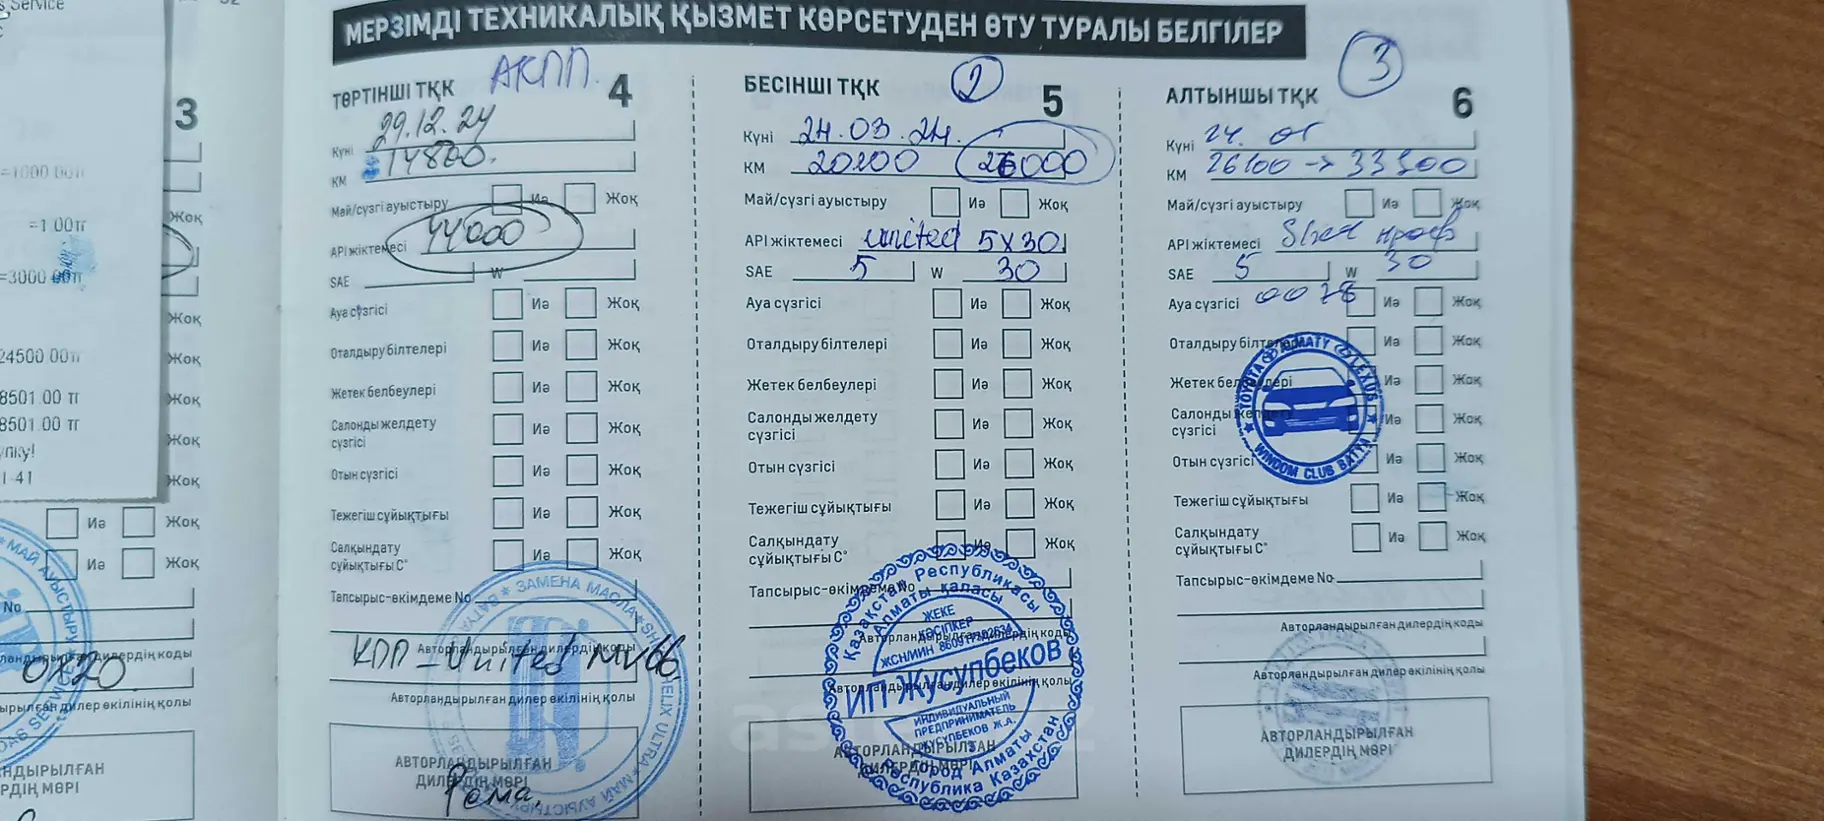 МЕРЗІМДІ ТЕХНИКАЛЫҚ ҚЫЗМЕТ КӨРСЕТУДЕН ӨТУ ТУРАЛЫ БЕЛГІЛЕР
s Service
=1000 00тг
=1 00тг
=3000 00тг
24500 00тг
8501.00 тг
8501.00 тг
1-41
3
Жоқ
Жоқ
Жоқ
Жоқ
Жоқ
Жоқ
Иә Жоқ
Иә Жоқ
No
0x20
ТӨРТІНШІ ТҚК АКПП. 4
Күні 29.12.24
КМ 14800.
Май/сүзгі ауыстыру Иә Жоқ
API жіктемесі 44000
SAE W
Ауа сүзгісі Иә Жоқ
Оталдыру білтелері Иә Жоқ
Жетек белбеулері Иә Жоқ
Салонды желдету
сүзгісі Иә Жоқ
Отын сүзгісі Иә Жоқ
Тежегіш сұйықтығы Иә Жоқ
Салқындату
сұйықтығы C° Иә Жоқ
Тапсырыс-әкімдеме No
Авторландырылған дилердің коды
КПП-United MV66
Авторландырылған дилер өкілінің қолы
АВТОРЛАНДЫРЫЛҒАН
ДИЛЕРДІҢ МӨРІ
Рома.
ЗАМЕНА МАСЛА * SHELL HELIX ULTRA * МАЙ АУЫСТЫРУ
БЕСІНШІ ТҚК 2 5
Күні 24.03.24.
КМ 20200 26000
Май/сүзгі ауыстыру Иә Жоқ
API жіктемесі united 5x30
SAE 5 W 30
Ауа сүзгісі Иә Жоқ
Оталдыру білтелері Иә Жоқ
Жетек белбеулері Иә Жоқ
Салонды желдету
сүзгісі Иә Жоқ
Отын сүзгісі Иә Жоқ
Тежегіш сұйықтығы Иә Жоқ
Салқындату
сұйықтығы C° Иә Жоқ
Тапсырыс-әкімдеме No
Авторландырылған дилердің коды
Авторландырылған дилер өкілінің қолы
АВТОРЛАНДЫРЫЛҒАН
ДИЛЕРДІҢ МӨРІ
Қазақстан Республикасы
Алматы қаласы
ЖЕКЕ
КӘСІПКЕР
ЖСН/ИИН
ИП Жусупбеков
ИНДИВИДУАЛЬНЫЙ
ПРЕДПРИНИМАТЕЛЬ
ЖУСУПБЕКОВ Ж.А.
город Алматы
Республика Казахстан
АЛТЫНШЫ ТҚК 3 6
Күні 24.
КМ 26100 -> 33300
Май/сүзгі ауыстыру Иә Жоқ
API жіктемесі
SAE 5 W 30
Ауа сүзгісі Иә Жоқ
Оталдыру білтелері Иә Жоқ
Жетек белбеулері Иә Жоқ
Салонды желдету
сүзгісі Иә Жоқ
Отын сүзгісі Иә Жоқ
Тежегіш сұйықтығы Иә Жоқ
Салқындату
сұйықтығы C° Иә Жоқ
Тапсырыс-әкімдеме No
Авторландырылған дилердің коды
Авторландырылған дилер өкілінің қолы
АВТОРЛАНДЫРЫЛҒАН
ДИЛЕРДІҢ МӨРІ
TOYOTA ALMATY LEXUS
WINDOM CLUB BATYA